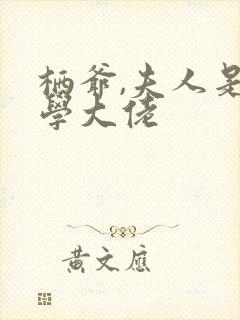 栖爷,夫人是
學大佬
黃文應